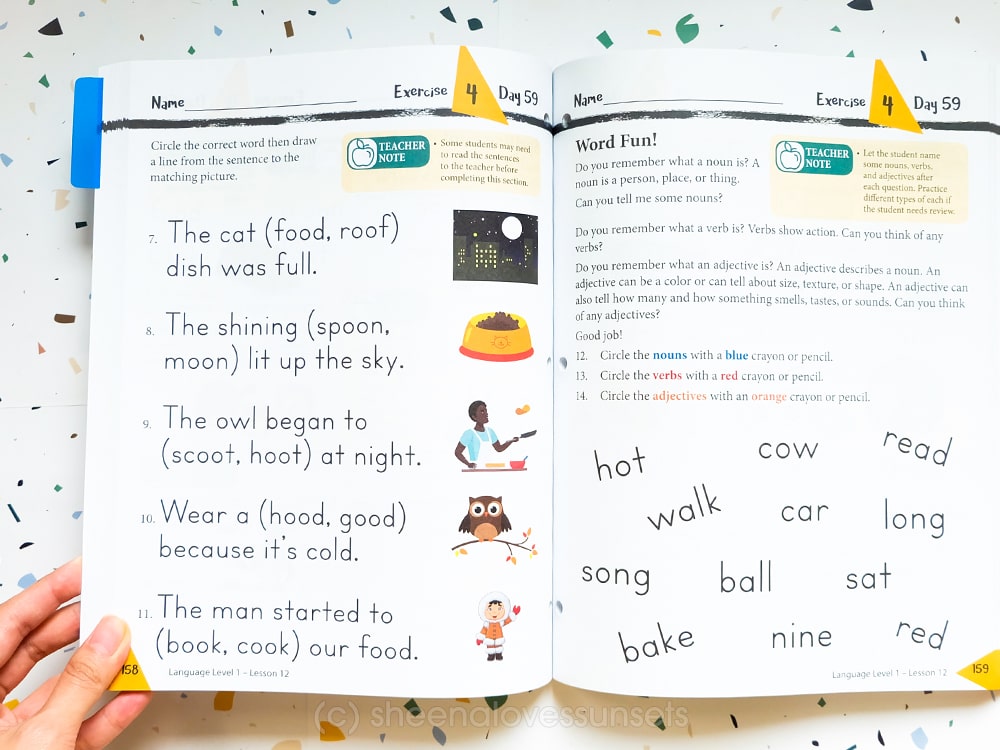 Name
Exercise 4 Day 59
Circle the correct word then draw
a line from the sentence to the
matching picture.
TEACHER
NOTE
• Some students may need
to read the sentences
to the teacher before
completing this section.
7. The cat (food, roof)
dish was full.
8. The shining (spoon,
moon) lit up the sky.
9. The owl began to
(scoot, hoot) at night.
10. Wear a (hood, good)
because it's cold.
11. The man started to
(book, cook) our food.
158
Language Level 1 – Lesson 12
Name
Exercise 4 Day 59
Word Fun!
Do you remember what a noun is? A
noun is a person, place, or thing.
Can you tell me some nouns?
TEACHER
NOTE
• Let the student name
some nouns, verbs,
and adjectives after
each question. Practice
different types of each if
the student needs review.
Do you remember what a verb is? Verbs show action. Can you think of any
verbs?
Do you remember what an adjective is? An adjective describes a noun. An
adjective can be a color or can tell about size, texture, or shape. An adjective can
also tell how many and how something smells, tastes, or sounds. Can you think
of any adjectives?
Good job!
12. Circle the nouns with a blue crayon or pencil.
13. Circle the verbs with a red crayon or pencil.
14. Circle the adjectives with an orange crayon or pencil.
hot cow read
walk car long
song ball sat
bake nine red
Language Level 1 – Lesson 12
159
(c) sheenalovessunsets